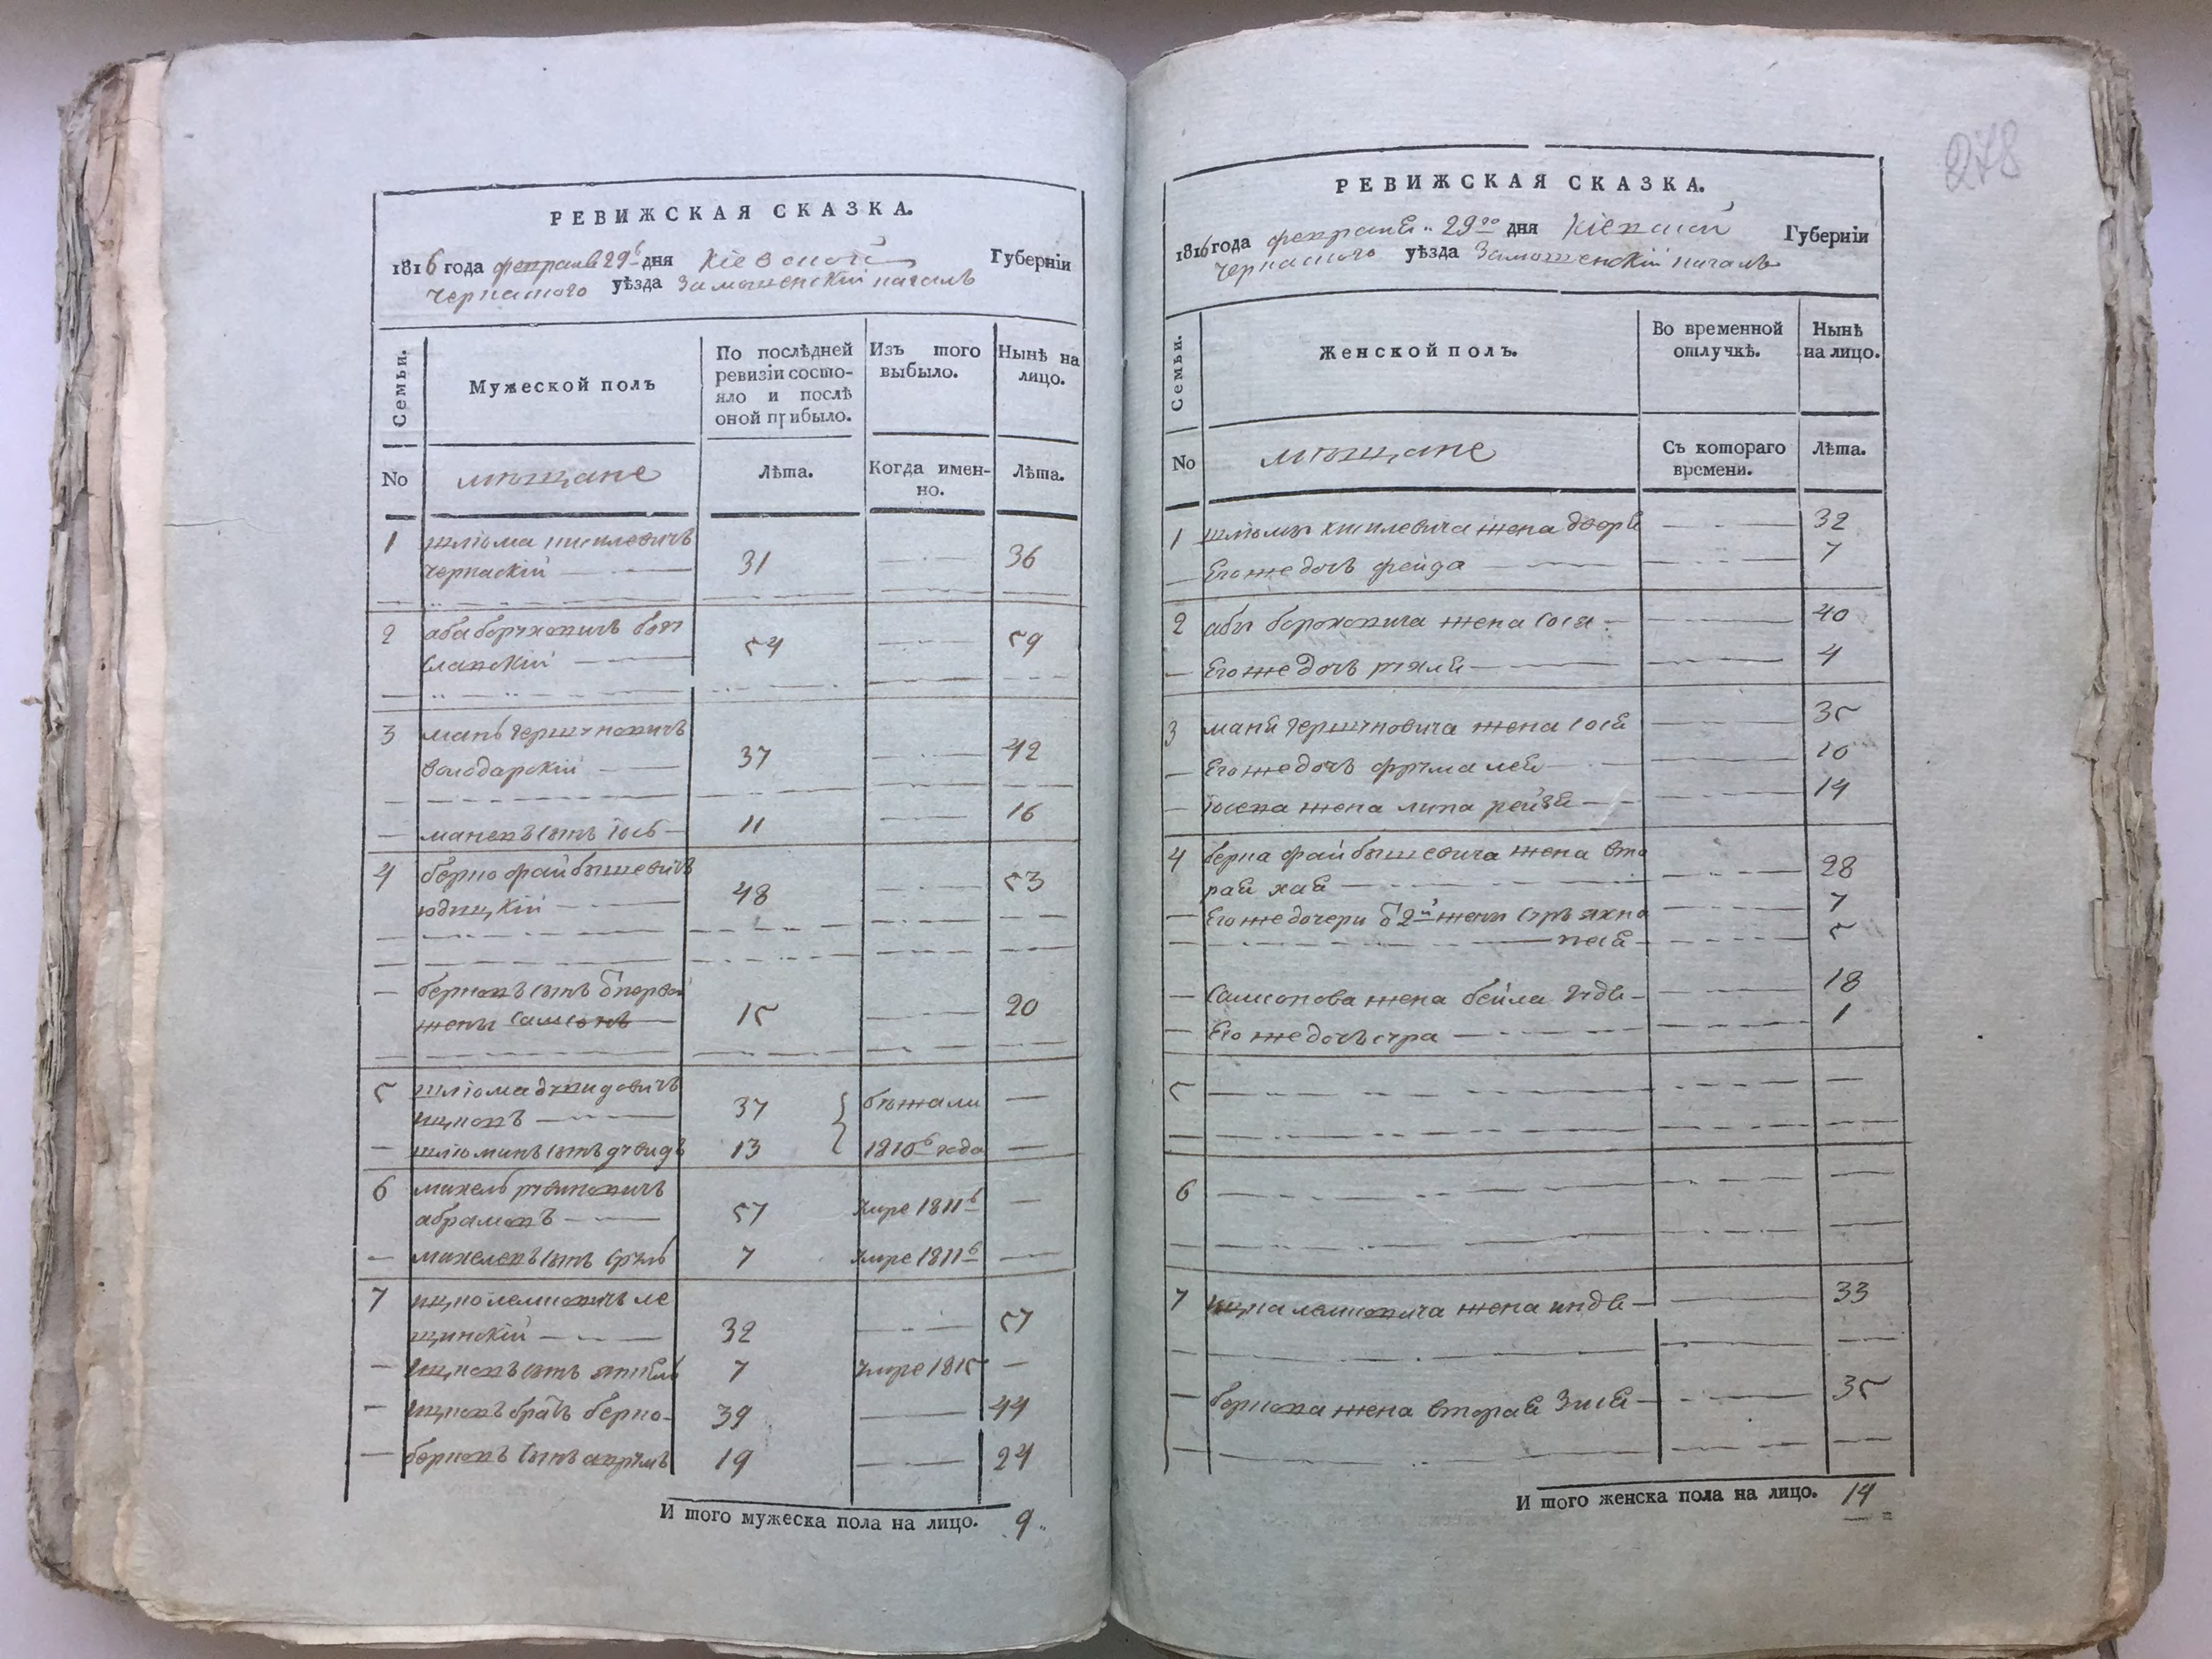 РЕВИЖСКАЯ СКАЗКА.
1816 года февраля 29 дня Кіевской Губерніи
Черкаского уѣзда
Семьи. Мужеской полъ По послѣдней ревизіи состояло и послѣ оной прибыло. Изъ того выбыло. Нынѣ на лицо.
No мѣщане Лѣта. Когда именно. Лѣта.
1 шліома
черкаскій 31 36
2 аба борухович бог
славскій 54 59
3 мань гершунович
володарскій 37 42
маневъ сынъ іось 11 16
4 берко файбышевичъ
юдицкій 48 53
берковъ сынъ от первой
жены самсонъ 15 20
5 шліома дувидовичъ
ицковъ 37 бѣжали
шліоминъ сынъ дувидъ 13 1810 года
6 михель рувиновичъ
абрамовъ 57 умре 1811
михелевъ сынъ сруль 7 умре 1811
7 ицко лемковичъ ле
щинскій 32 57
ицковъ сынъ 7 умре 1815
ицковъ братъ берко 39 44
берковъ сынъ аврумъ 19 24
И того мужеска пола на лицо. 9
278
РЕВИЖСКАЯ СКАЗКА.
1816 года февраля 29го дня Кіевской Губерніи
Черкаского уѣзда
Семьи. Женской полъ. Во временной отлучкѣ. Нынѣ на лицо.
No мѣщане Съ котораго времени. Лѣта.
1 шліомы жена дворя 32
Его же дочь фейда 7
2 абы борохович жена сося 40
Его же дочь рухля 4
3 маня гершуновича жена сося 35
Его же дочь фрума лея 10
іосева жена липа рейзя 14
4 берка файбышевича жена вто
рая хая 28
Его же дочери от 2й жены 7
песя 5
Самсонова жена бейла 18
Его же дочь сура 1
5
6
7 ицка лемковича жена индя 33
беркова жена вторая Зися 35
И того женска пола на лицо. 14